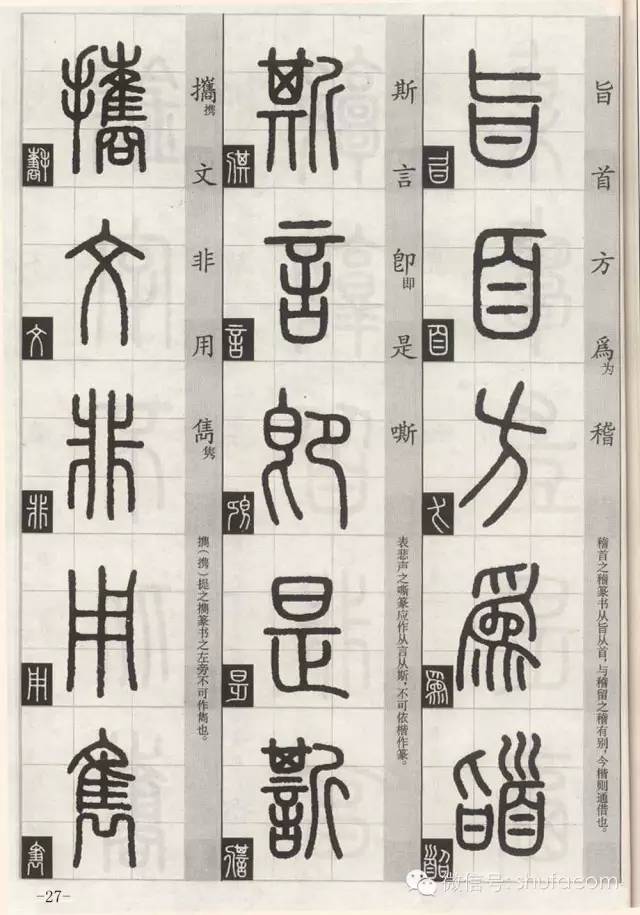 旨首方爲为稽
稽首之稽篆书从旨从首，与稽留之稽有别，今楷则通借也。
斯言卽即是嘶
表悲声之嘶篆应作从言从斯，不可依楷作篆。
攜携文非用雋隽
携（携）提之携篆书之左旁不可作雋也。
-27-
微信号: shufacom